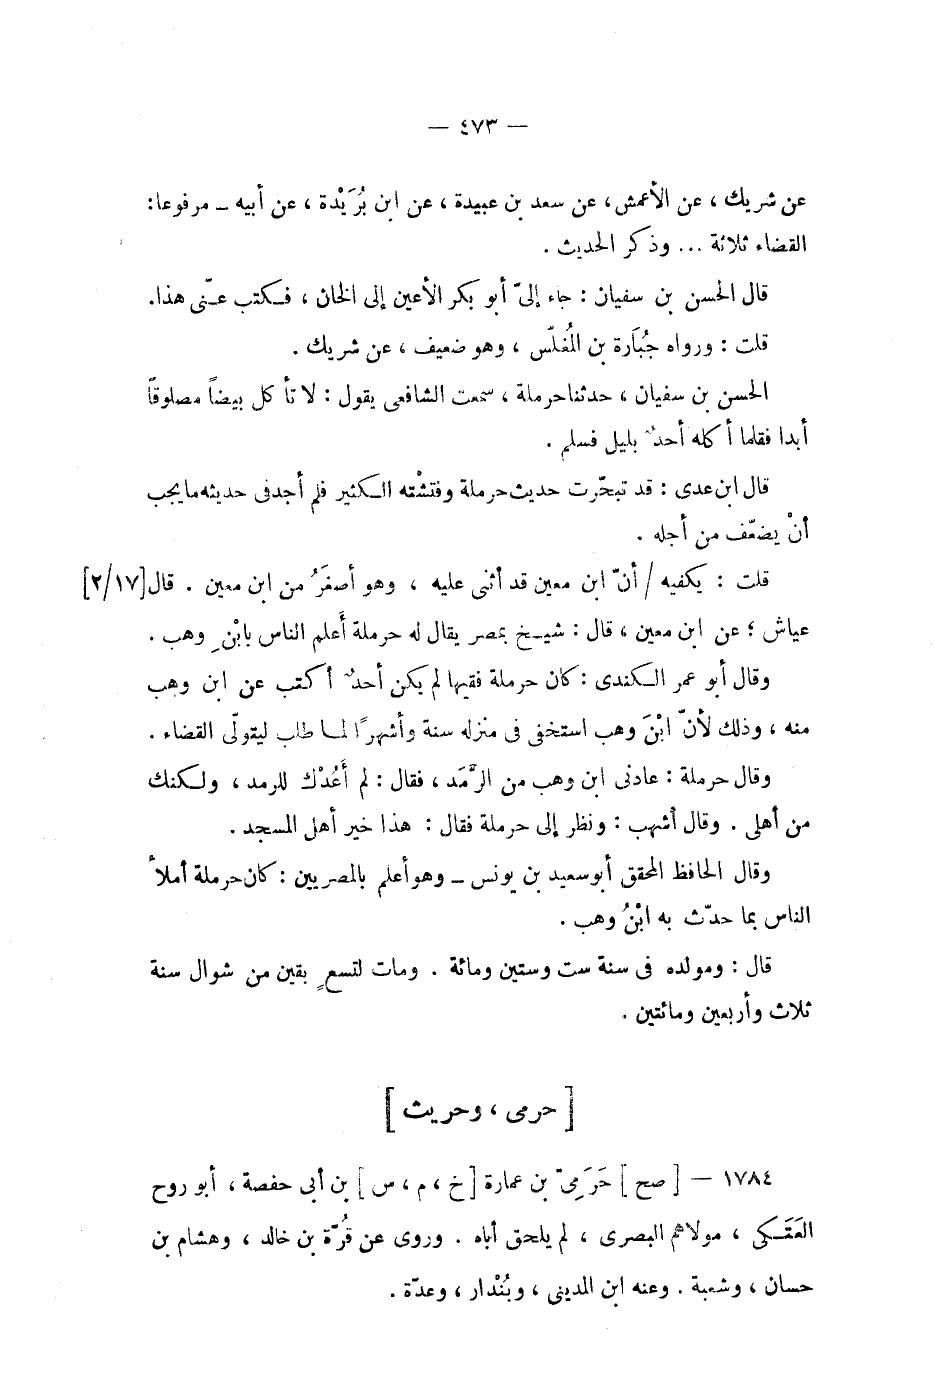 — ٤٧٣ —
عن شريك ، عن الأعمش، عن سعد بن عبيدة ، عن ابن بُرَيْدة ، عن أبيه ــ مرفوعا:
القضاء ثلاثة ... وذكر الحديث .
قال الحسن بن سفيان : جاء إلىّ أبو بكر الأعين إلى الخان ، فكتب عنّى هذا.
قلت : ورواه جُبَارة بن المُغلّس ، وهو ضعيف ، عن شريك .
الحسن بن سفيان ، حدثنا حرملة ، سمعت الشافعى يقول : لا تأكل بيضاً مصلوقاً
أبدا فقلما أكله أحدٌ بليل فسلم .
قال ابن عدى : قد تبحّرت حديث حرملة وفتشْته الكثير فلم أجد فى حديثه ما يجب
أنْ يضعّف من أجله .
قلت : يكفيه / أنّ ابن معين قد أثنى عليه ، وهو أصغَرُ من ابن معين . قال [٢/١٧]
عياش ؛ عن ابن معين ، قال : شيخ بمصر يقال له حرملة أَعلم الناس بابْنِ وهب .
وقال أبو عمر الكندى : كان حرملة فقيها لم يكن أحدٌ أكتب عن ابن وهب
منه ، وذلك لأنّ ابْنَ وهب استخفى فى منزله سنة وأشهرًا لما طلب ليتولّى القضاء .
وقال حرملة : عادنى ابن وهب من الرَّمَد ، فقال : لم أَعُدْك للرمد ، ولكنك
من أهلى . وقال أشهب : ونظر إلى حرملة فقال : هذا خير أهل المسجد .
وقال الحافظ المحقق أبو سعيد بن يونس ــ وهو أعلم بالمصريين : كان حرملة أملأ
الناس بما حدّث به ابْنُ وهب .
قال : ومولده فى سنة ست وستين ومائة . ومات لتسعٍ بقين من شوال سنة
ثلاث وأربعين ومائتين .
[ حرمى ، وحريث ]
١٧٨٤ — [ صح ] حَرَمِىّ بن عمارة [ خ ، م ، س ] بن أبى حفصة ، أبو روح
العَتَكى ، مولاهم البصرى ، لم يلحق أباه . وروى عن قُرّة بن خالد ، وهشام بن
حسان ، وشعبة . وعنه ابن المدينى ، وبُنْدار ، وعدّة .